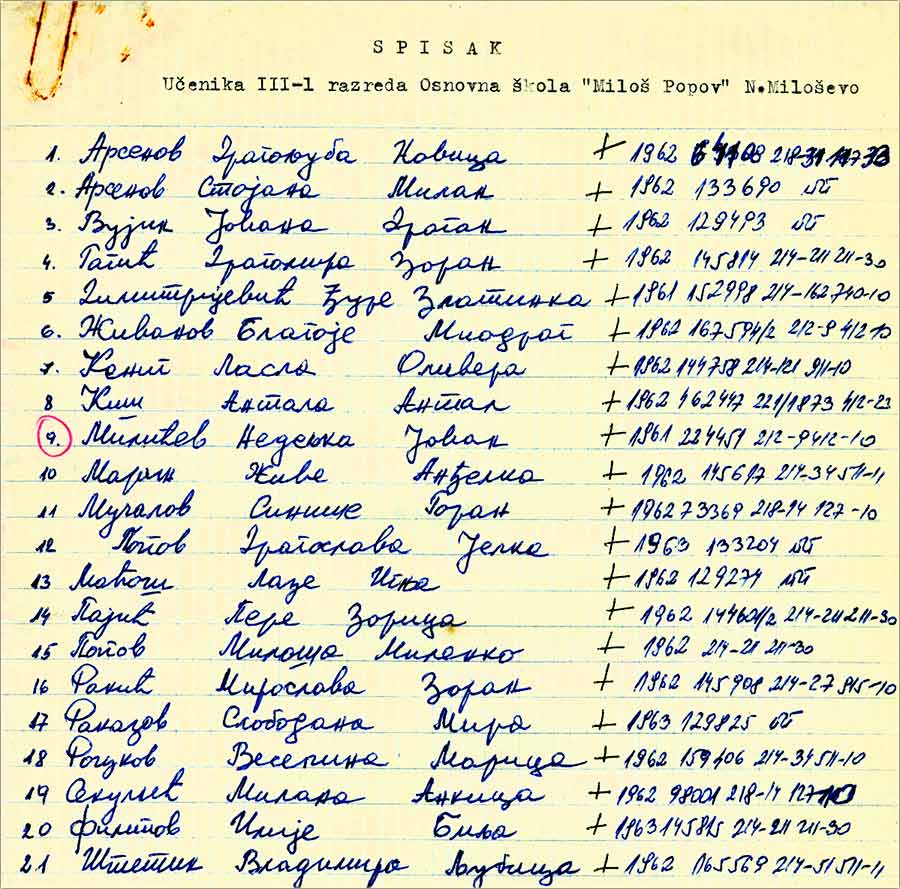 SPISAK
Učenika III-1 razreda Osnovna škola "Miloš Popov" N.Miloševo
1. Арсенов Драгољуба Новица + 1962
2. Арсенов Стојана Милан + 1962 133690 ил
3. Вујин Јована Драган + 1962 129493 ил
4. Гагић Драгомира Зоран + 1962 145814 214-211 211-30
5 Димитријевић Ђуре Златинка + 1961 152998 214-162740-10
6. Живанов Благоје Миодраг + 1962 167594/2 212-9 412-10
7. Кениг Ласла Оливера + 1962 144758 214-121 911-10
8 Киш Антала Антал + 1962 462447 221/1873 412-23
9. Милићев Недељка Јован + 1961 224451 212-9412-10
10 Марјин Живе Анђелка + 1962 145617 214-34511-11
11 Мучалов Синише Горан + 1962 73369 218-14 127-10
12 Попов Драгослава Јелка + 1963 133204 ил
13 Лазе + 1962 129274 ил
14 Пајић Пере Зорица + 1962 144601/2 214-211 211-30
15 Попов Милоша Миленко + 1962 214-211 211-30
16 Ракић Мирослава Зоран + 1962 145908 214-27 915-10
17 Слободана Мира + 1963 129825 ил
18 Веселина Марица + 1962 159406 214-34511-10
19 Секулић Милана Анкица + 1962 98001 218-14 127-10
20 Филипов Илије Биља + 1963 145815 214-211 211-30
21 Штетин Владимира Љубица + 1962 165569 214-51511-11